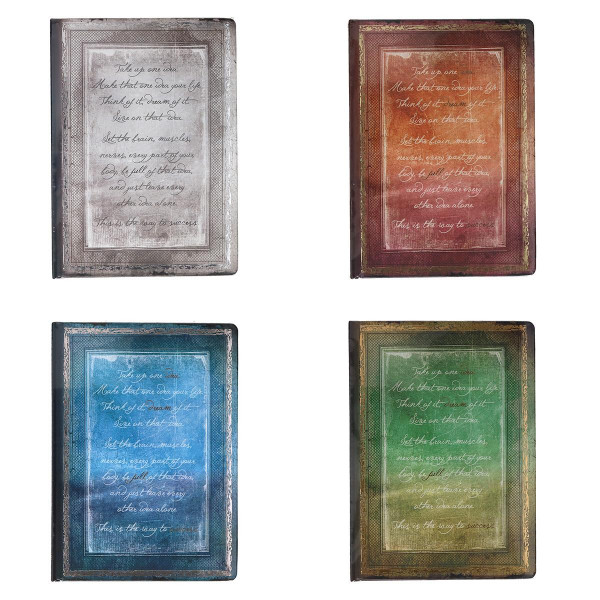 Take up one idea.
Make that one idea your life.
Think of it, dream of it.
Live on that idea.
Let the brain, muscles,
nerves, every part of your
body, be full of that idea,
and just leave every
other idea alone.
This is the way to success.
Take up one idea.
Make that one idea your life.
Think of it, dream of it.
Live on that idea.
Let the brain, muscles,
nerves, every part of your
body, be full of that idea,
and just leave every
other idea alone.
This is the way to success.
Take up one idea.
Make that one idea your life.
Think of it, dream of it.
Live on that idea.
Let the brain, muscles,
nerves, every part of your
body, be full of that idea,
and just leave every
other idea alone.
This is the way to success.
Take up one idea.
Make that one idea your life.
Think of it, dream of it.
Live on that idea.
Let the brain, muscles,
nerves, every part of your
body, be full of that idea,
and just leave every
other idea alone.
This is the way to success.